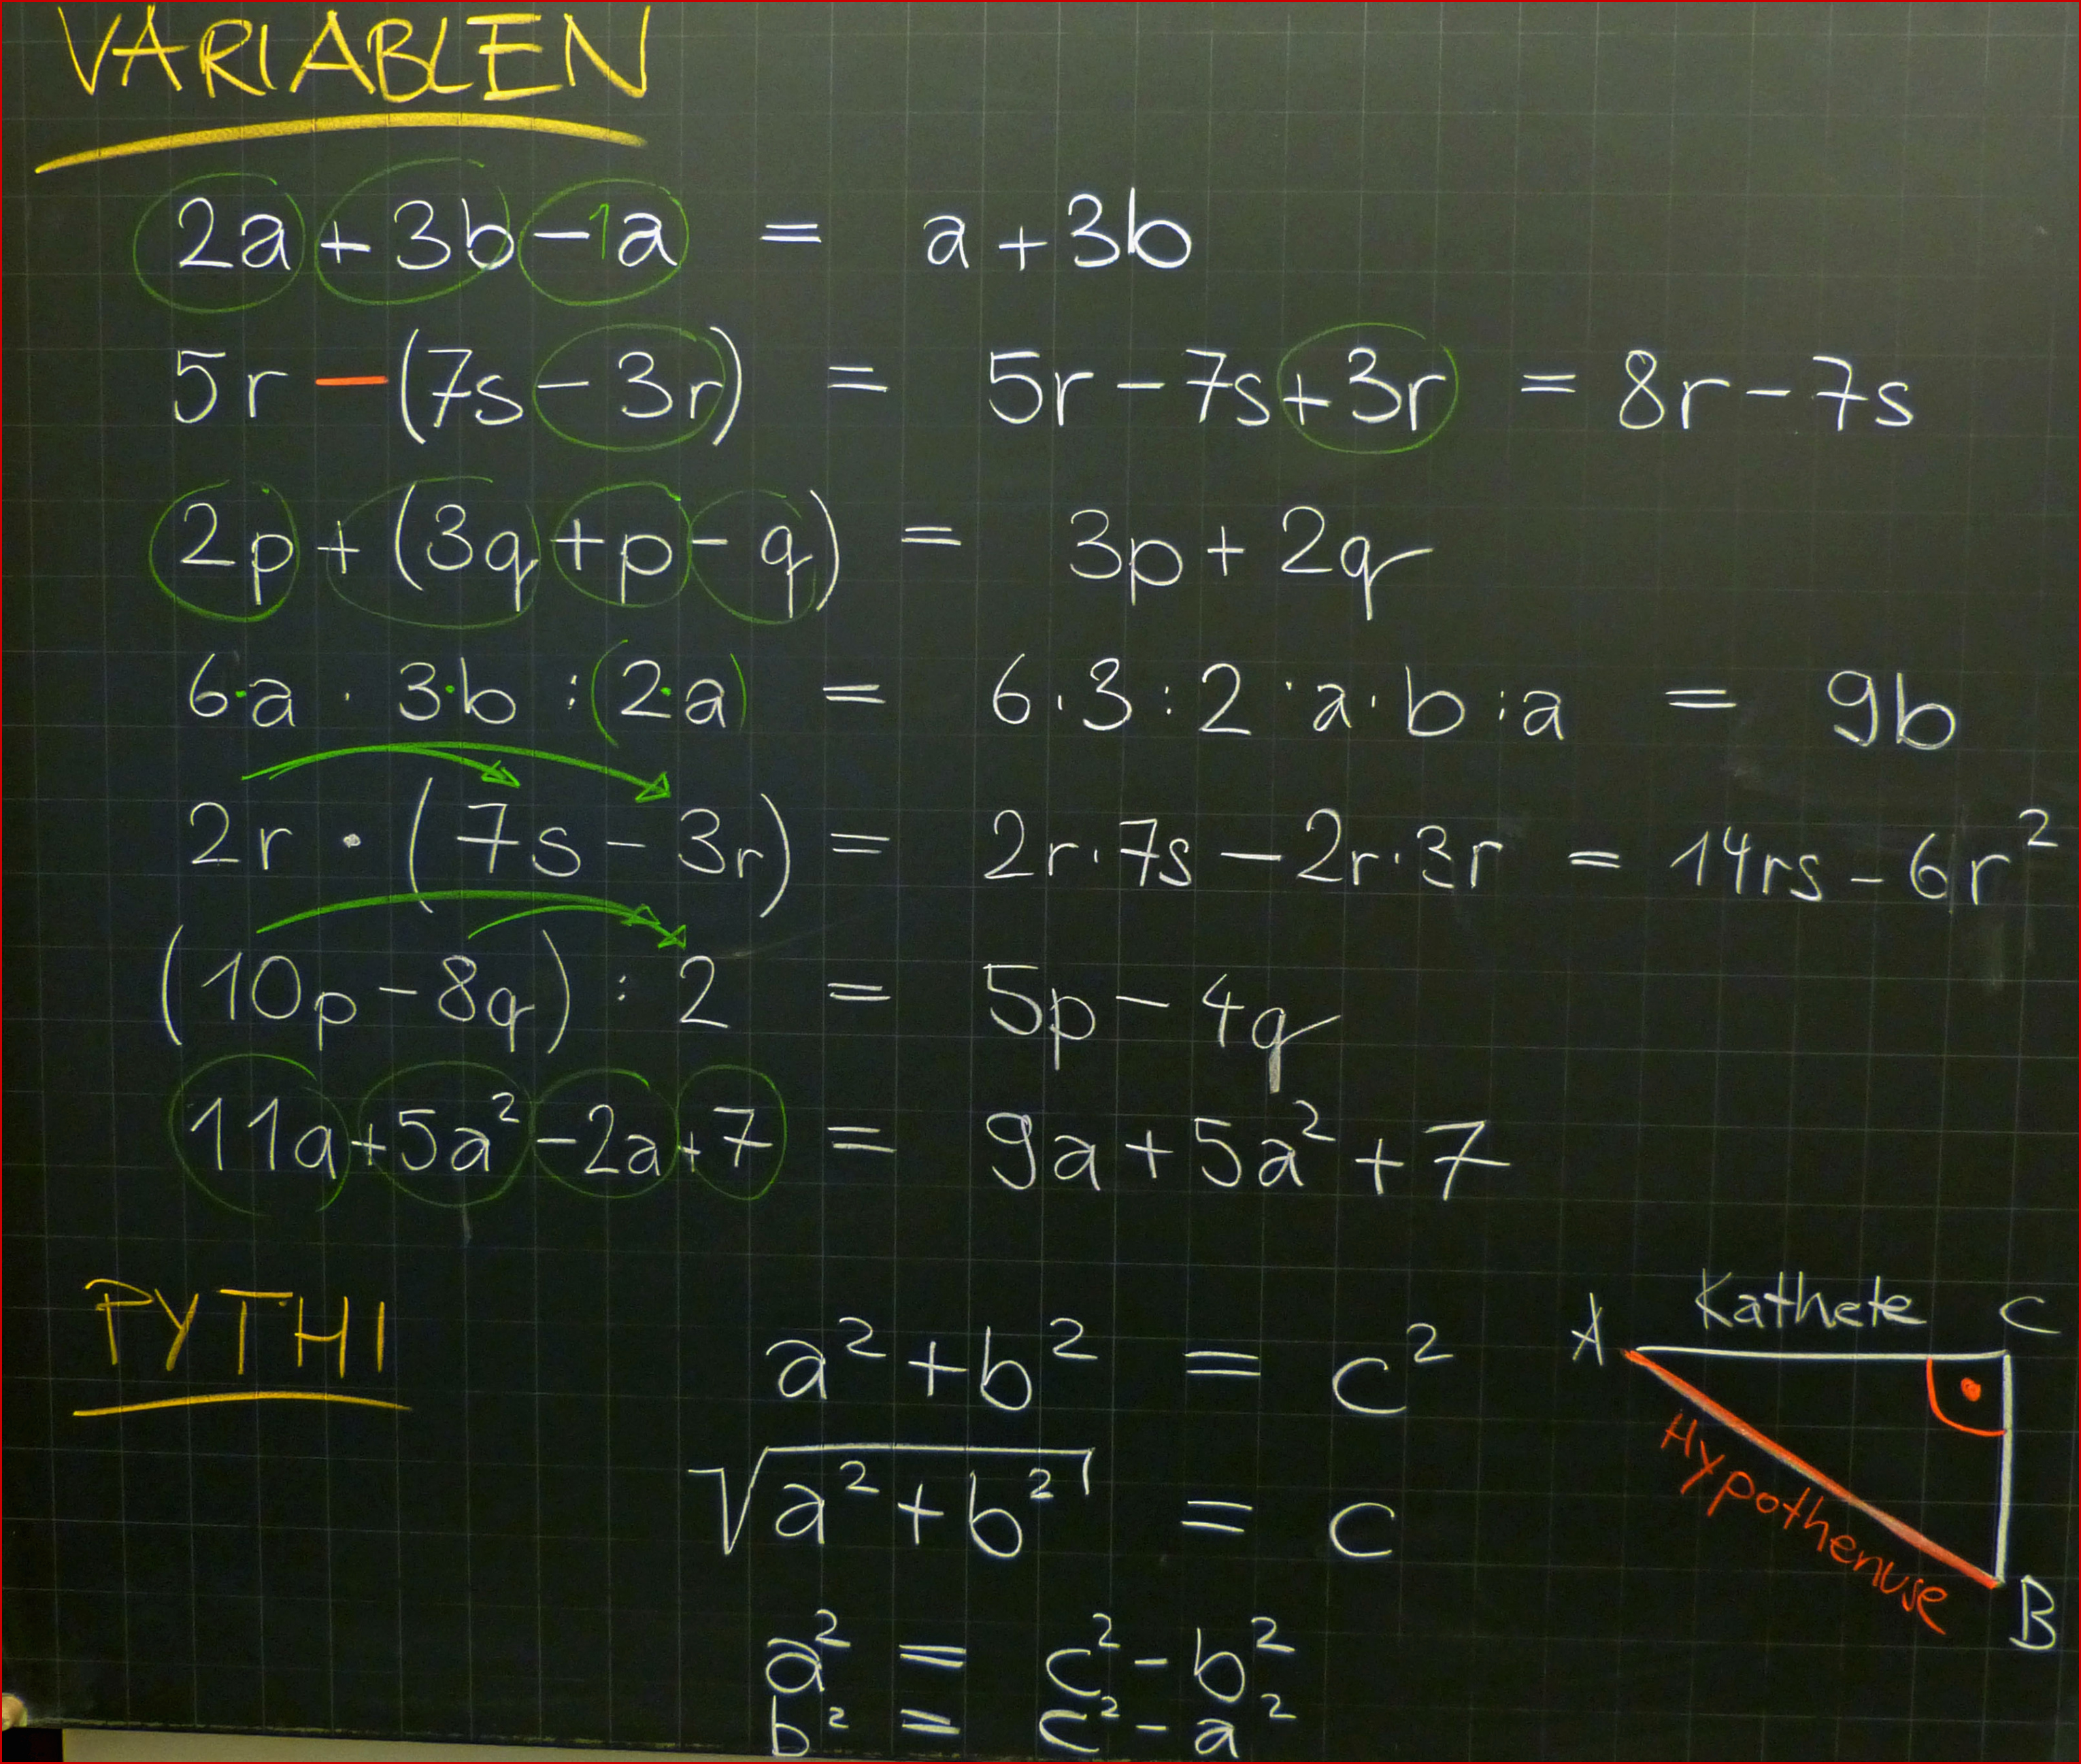 VARIABLEN
2a + 3b - 1a = a + 3b
5r - (7s - 3r) = 5r - 7s + 3r = 8r - 7s
2p + (3q + p - q) = 3p + 2q
6·a · 3·b : (2·a) = 6·3:2·a·b:a = 9b
2r · (7s - 3r) = 2r·7s - 2r·3r = 14rs - 6r²
(10p - 8q) : 2 = 5p - 4q
11a + 5a² - 2a + 7 = 9a + 5a² + 7
PYTHI
a² + b² = c²
√(a² + b²) = c
a² = c² - b²
b² = c² - a²
A Kathete C
Hypothenuse
B